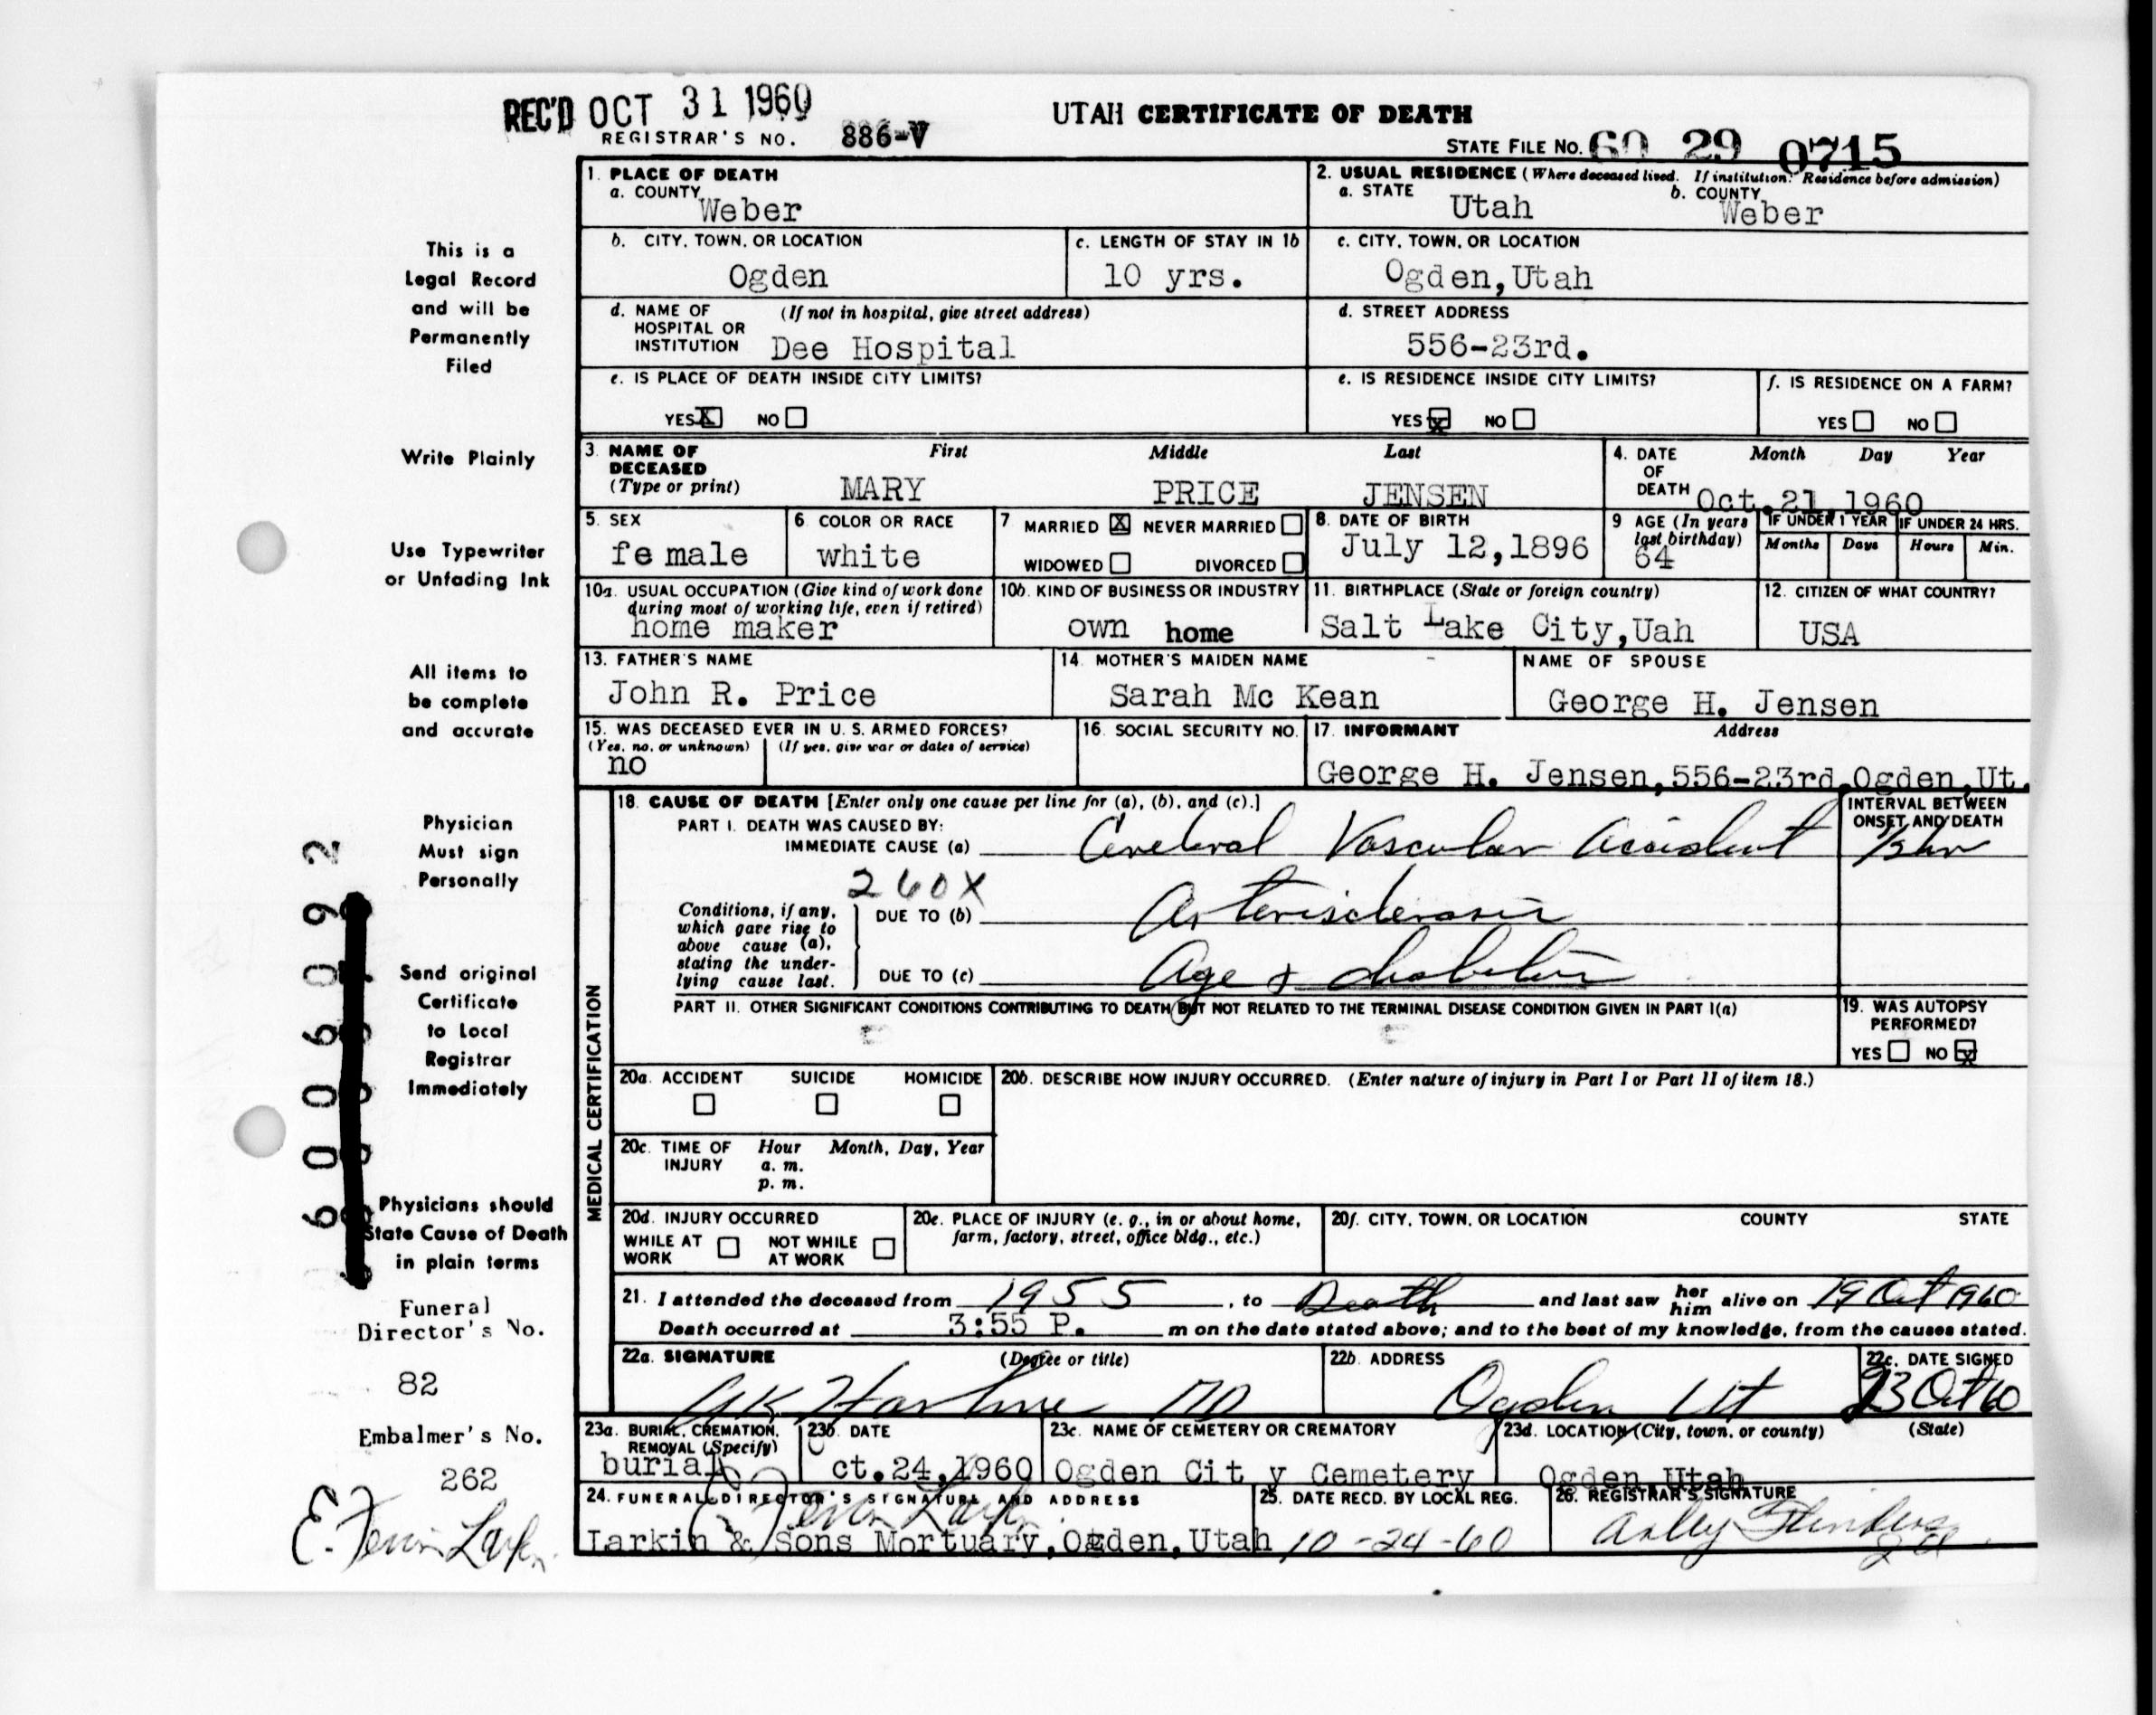 REC'D OCT 31 1960
UTAH CERTIFICATE OF DEATH
REGISTRAR'S NO. 886-V
STATE FILE No. 60 29 0715
1. PLACE OF DEATH
a. COUNTY
Weber
2. USUAL RESIDENCE (Where deceased lived. If institution: Residence before admission)
a. STATE b. COUNTY
Utah Weber
b. CITY, TOWN, OR LOCATION
Ogden
c. LENGTH OF STAY IN 1b
10 yrs.
c. CITY, TOWN, OR LOCATION
Ogden,Utah
d. NAME OF (If not in hospital, give street address)
HOSPITAL OR
INSTITUTION Dee Hospital
d. STREET ADDRESS
556-23rd.
e. IS PLACE OF DEATH INSIDE CITY LIMITS?
YES X NO
e. IS RESIDENCE INSIDE CITY LIMITS?
YES X NO
f. IS RESIDENCE ON A FARM?
YES NO
3. NAME OF DECEASED (Type or print)
First Middle Last
MARY PRICE JENSEN
4. DATE OF DEATH
Month Day Year
Oct.21,1960
5. SEX
female
6. COLOR OR RACE
white
7 MARRIED X NEVER MARRIED
WIDOWED DIVORCED
8. DATE OF BIRTH
July 12,1896
9 AGE (In years last birthday)
64
IF UNDER 1 YEAR IF UNDER 24 HRS.
Months Days Hours Min.
10a. USUAL OCCUPATION (Give kind of work done
during most of working life, even if retired)
home maker
10b. KIND OF BUSINESS OR INDUSTRY
own home
11. BIRTHPLACE (State or foreign country)
Salt Lake City,Uah
12. CITIZEN OF WHAT COUNTRY?
USA
13. FATHER'S NAME
John R. Price
14. MOTHER'S MAIDEN NAME
Sarah Mc Kean
NAME OF SPOUSE
George H. Jensen
15. WAS DECEASED EVER IN U. S. ARMED FORCES?
(Yes, no, or unknown) (If yes, give war or dates of service)
no
16. SOCIAL SECURITY NO.
17. INFORMANT Address
George H. Jensen,556-23rd,Ogden,Ut.
MEDICAL CERTIFICATION
18. CAUSE OF DEATH [Enter only one cause per line for (a), (b), and (c).]
INTERVAL BETWEEN
ONSET AND DEATH
PART I. DEATH WAS CAUSED BY:
IMMEDIATE CAUSE (a) Cerebral Vascular Accident 1/2 hr
260X
Conditions, if any,
which gave rise to
above cause (a),
stating the under-
lying cause last.
DUE TO (b) Arterisclerosis
DUE TO (c) Age & diabetes
PART II. OTHER SIGNIFICANT CONDITIONS CONTRIBUTING TO DEATH BUT NOT RELATED TO THE TERMINAL DISEASE CONDITION GIVEN IN PART I(a)
19. WAS AUTOPSY
PERFORMED?
YES NO X
20a. ACCIDENT SUICIDE HOMICIDE
20b. DESCRIBE HOW INJURY OCCURRED. (Enter nature of injury in Part I or Part II of item 18.)
20c. TIME OF INJURY
Hour Month, Day, Year
a. m.
p. m.
20d. INJURY OCCURRED
WHILE AT WORK NOT WHILE AT WORK
20e. PLACE OF INJURY (e. g., in or about home,
farm, factory, street, office bldg., etc.)
20f. CITY, TOWN, OR LOCATION COUNTY STATE
21. I attended the deceased from 1955, to Death and last saw her him alive on 19 Oct 1960
Death occurred at 3:55 P. m on the date stated above; and to the best of my knowledge, from the causes stated.
22a. SIGNATURE (Degree or title)
MD
22b. ADDRESS
Ogden Ut
22c. DATE SIGNED
23 Oct 60
23a. BURIAL, CREMATION,
REMOVAL (Specify)
burial
23b. DATE
Oct.24,1960
23c. NAME OF CEMETERY OR CREMATORY
Ogden Cit y Cemetery
23d. LOCATION (City, town, or county) (State)
Ogden,Utah
24. FUNERAL DIRECTOR'S SIGNATURE AND ADDRESS
Larkin & Sons Mortuary,Ogden,Utah
25. DATE RECD. BY LOCAL REG.
10-24-60
26. REGISTRAR'S SIGNATURE
This is a
Legal Record
and will be
Permanently
Filed
Write Plainly
Use Typewriter
or Unfading Ink
All items to
be complete
and accurate
Physician
Must sign
Personally
Send original
Certificate
to Local
Registrar
Immediately
Physicians should
State Cause of Death
in plain terms
Funeral
Director's No.
82
Embalmer's No.
262
6006092